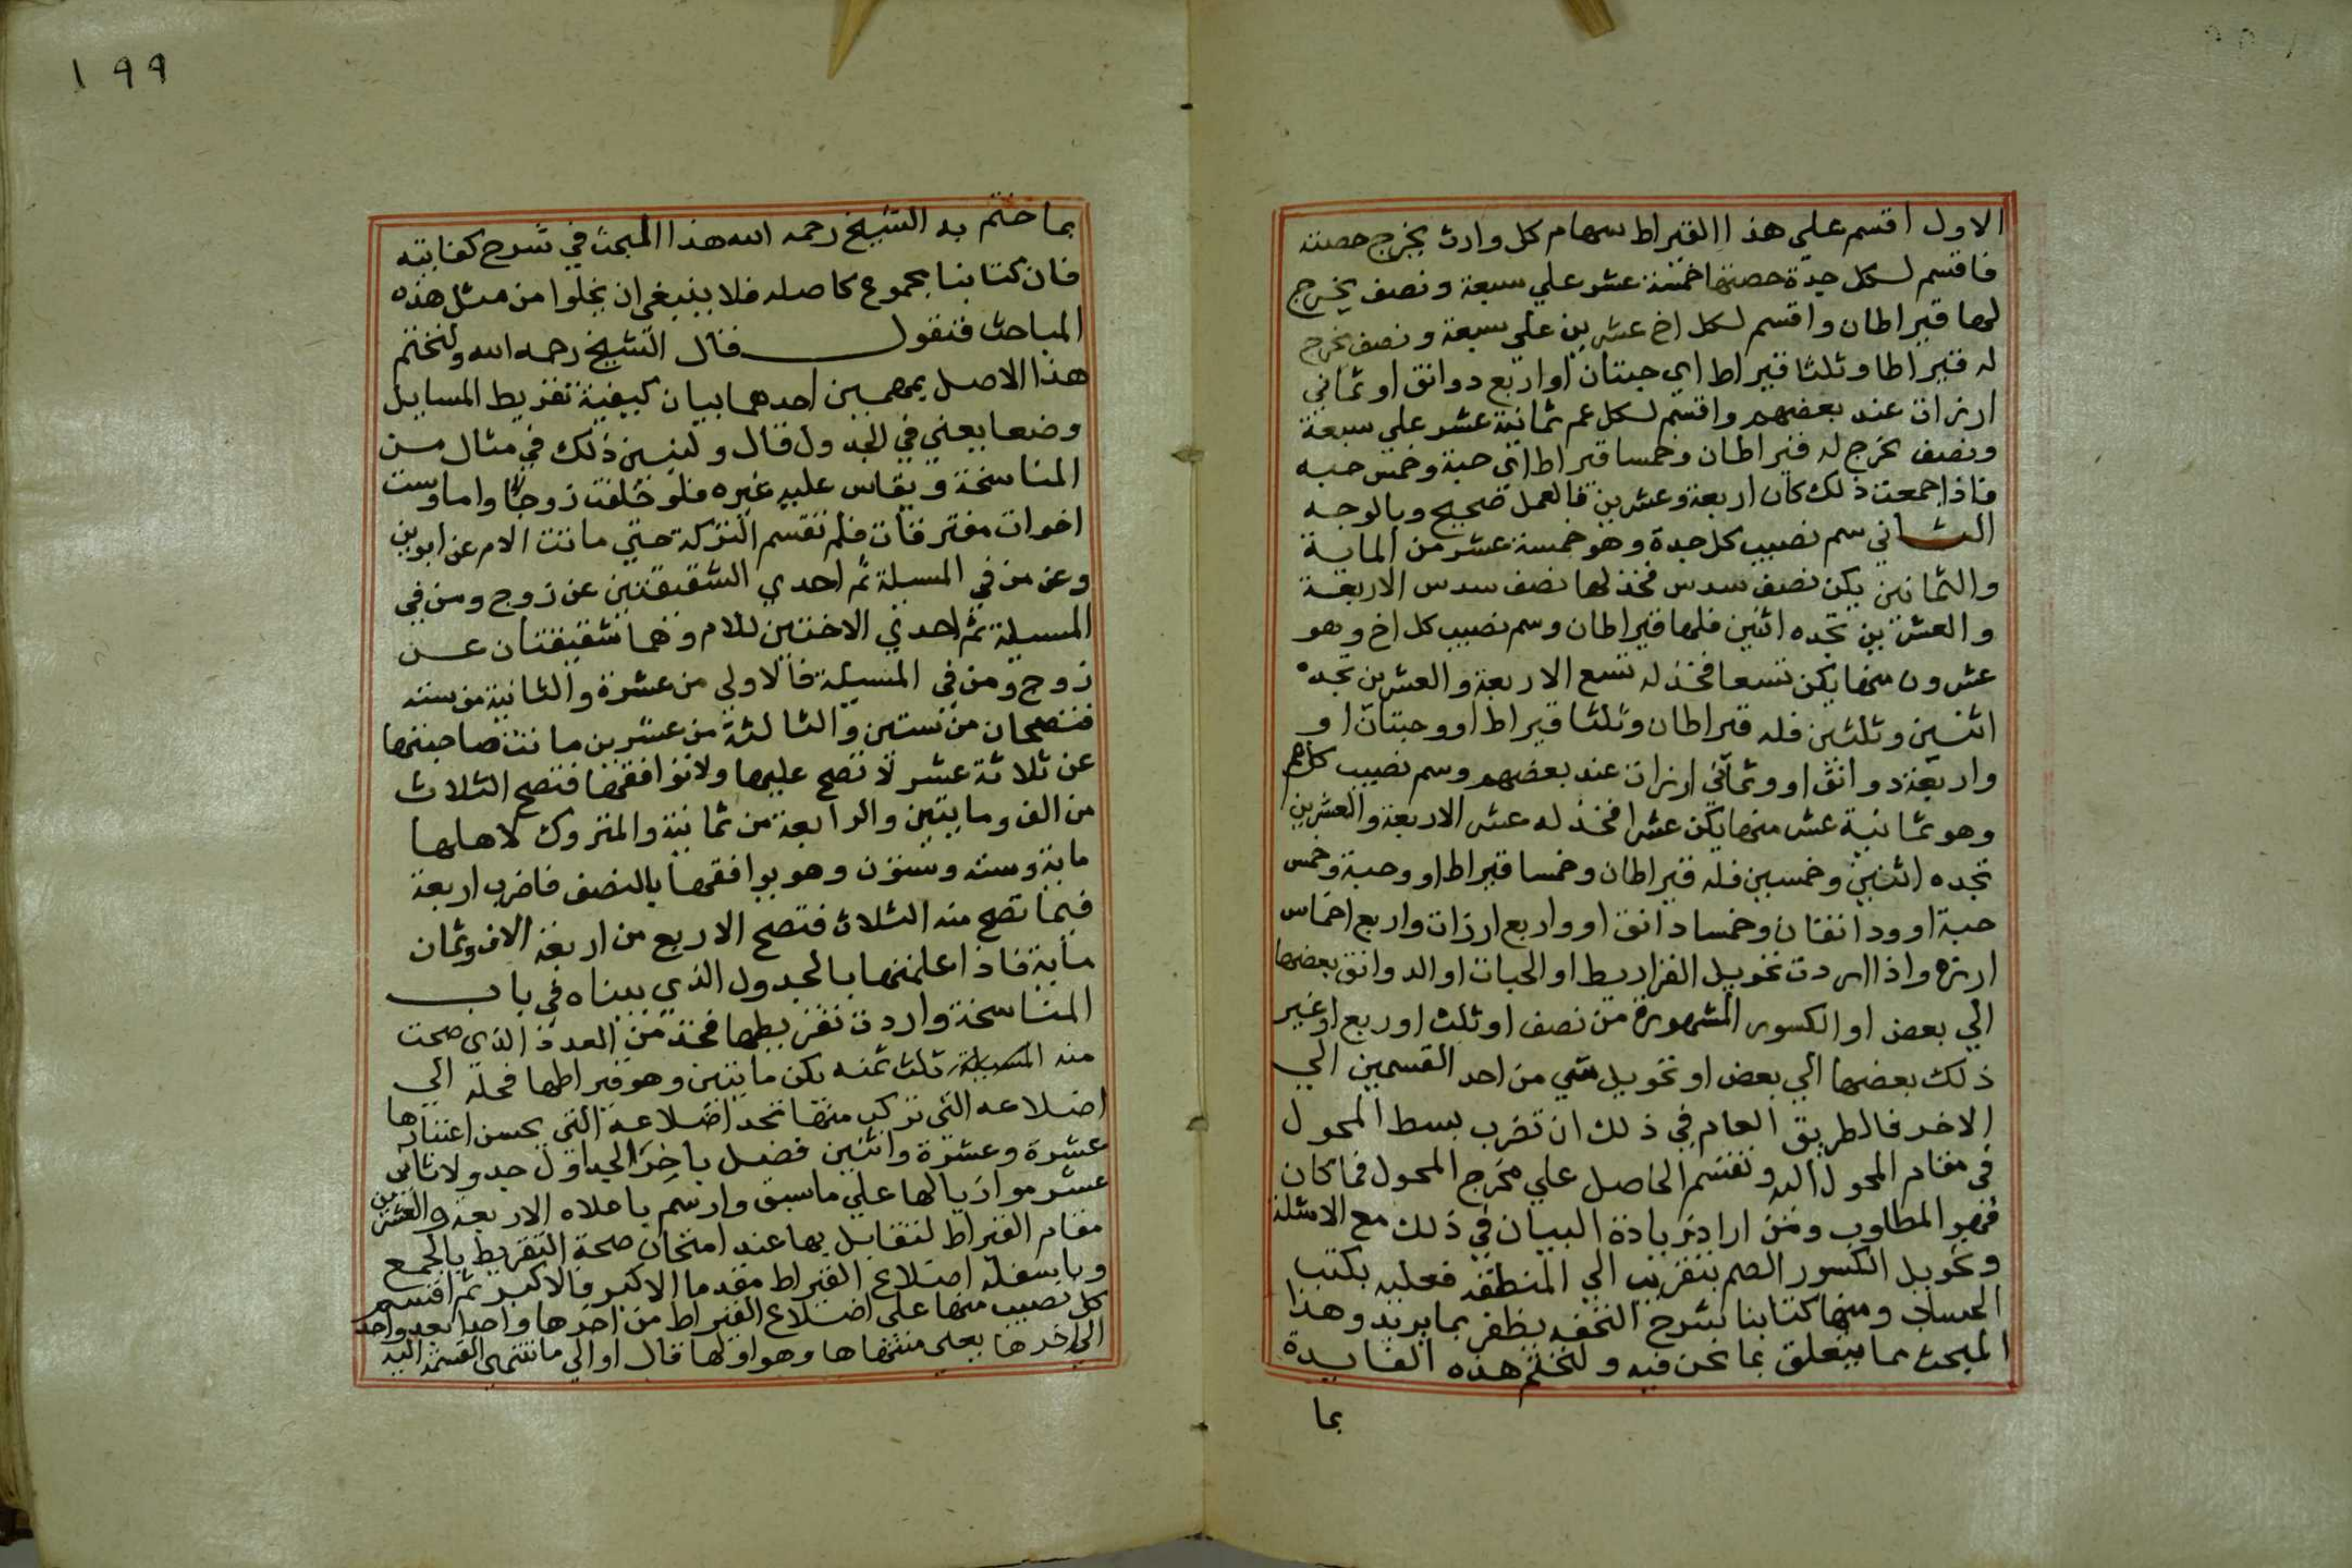 الاول اقسم علي هذا القيراط سهام كل وارث يخرج حصته
فاقسم لكل جدة حصتها خمسة عشر علي سبعة ونصف يخرج
لها قيراطان واقسم لكل اخ عشرين علي سبعة ونصف يخرج
له قيراطا وثلثا قيراط اي حبتان او اربع دوانق او ثماني
ارزات عند بعضهم واقسم لكل عم ثمانية عشر علي سبعة
ونصف يخرج له قيراطان وخمسا قيراط اي حبة وخمس حبه
فاذا جمعت ذلك كان اربعة وعشرين فالعمل صحيح وبالوجه
الثاني سم نصيب كل جدة وهو خمسة عشر من الماية
والثمانين يكن نصف سدس فخذ لها نصف سدس الاربعة
والعشرين تجده اثنين فلها قيراطان وسم نصيب كل اخ وهو
عشرون منها يكن تسعا فخذ له تسع الاربعة والعشرين تجده
اثنين وثلثين فله قيراطان وثلثا قيراط او وحبتان او
واربعة دوانق او وثماني ارزات عند بعضهم وسم نصيب كل عم
وهو ثمانية عشر منها يكن عشرا فخذ له عشر الاربعة والعشرين
تجده اثنين وخمسين فله قيراطان وخمسا قيراط او وحبة وخمس
حبة او ودانقان وخمسا دانق او واربع ارزات واربع اخماس
ارزه واذا اردت تحويل القراريط او الحبات او الدوانق بعضها
الي بعض او الكسور المشهورة من نصف او ثلث او ربع او غير
ذلك بعضها الي بعض او تحويل شي من احد القسمين الي
الاخر فالطريق العام في ذلك ان تضرب بسط المحول
في مقام المحول اليه وتقسم الحاصل علي مخرج المحول فما كان
فهو المطلوب ومن اراد زيادة البيان في ذلك مع الامثلة
وتحويل الكسور الصم بتقريب الي المنطقه فعليه بكتب
الحساب ومنها كتابنا شرح التحفه يظفر بما يريد وهذا
المبحث مما يتعلق بما نحن فيه ولنختم هذه الفايدة
بما
١٩٩
بما ختم به الشيخ رحمه الله هذا المبحث في شرح كفايته
فان كتابنا مجموع كاصله فلا ينبغي ان يخلوا من مثل هذه
المباحث فنقول قال الشيخ رحمه الله ولنختم
هذا الاصل بمهمين احدهما بيان كيفية تقريط المسايل
وضعا يعني في الجدول قال ولنبين ذلك في مثال من
المناسخة ويقاس عليه غيره فلو خلفت زوجا واما وست
اخوات مفترقات فلم تقسم التركة حتي ماتت الام عن ابوين
وعن من في المسيلة ثم احدي الشقيقتين عن زوج ومن في
المسيلة ثم احدي الاختين للام وهما شقيقتان عن
زوج ومن في المسيلة فالاولي من عشرة والثانية من سته
فتصحان من ستين والثالثة من عشرين ماتت صاحبتها
عن ثلاثة عشر لا تصح عليها ولا توافقها فتصح الثلاث
من الف ومايتين والرابعة من ثمانية والمتروك لاهلها
ماية وسته وستون وهو يوافقها بالنصف فاضرب اربعة
فيما تصح منه الثلاث فتصح الاربع من اربعة الاف وثمان
ماية فاذا علمتها بالجدول الذي بيناه في باب
المناسخة واردت تقريطها فخذ من العدد الذي صحت
منه المسيلة ثلث ثمنه يكن مايتين وهو قيراطها فحله الي
اضلاعه التي تركب منها تجد اضلاعه التي يحسن اعتبارها
عشرة وعشرة واثنين فصل باخر الجداول جدولا ثاني
عشر موازيا لها علي ما سبق وارسم باعلاه الاربعة والعشرين
مقام القيراط لتقابل بها عند امتحان صحة التقريط بالجمع
وباسفله اضلاع القيراط مقدما الاكبر فالاكبر ثم اقسم
كل نصيب منها علي اضلاع القيراط من اخرها واحدا بعد واحد
الي اخرها يعني منتهاها وهو اولها قال او الي ما تنتهي القسمة اليه